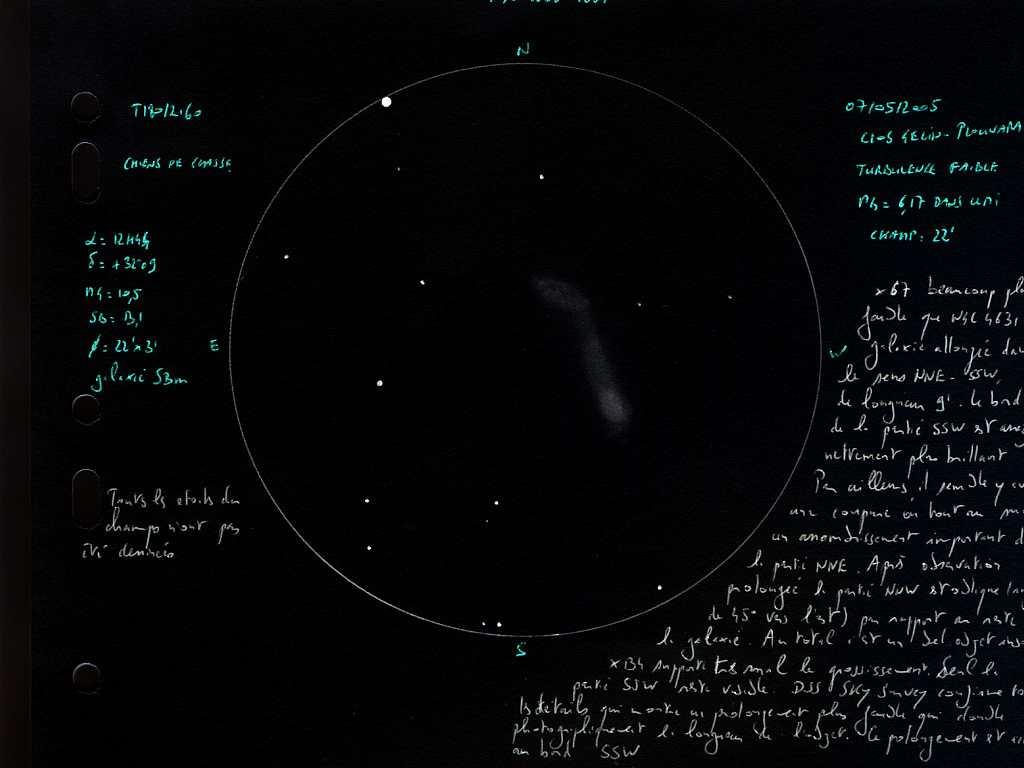 N
T180/2160
CHIENS DE CHASSE
α = 12H46
δ = +32°09
MG = 10,5
SB = 13,1
φ = 22'x3'
galaxie SBm
E
Toutes les étoiles du
champs n'ont pas
été dessinées
07/05/2005
TURBULENCE FAIBLE
MG = 6,17 DANS UMI
CHAMP: 22'
W
S
x67 beaucoup
faible que NGC 4631
galaxie allongée
le sens NNE-SSW,
de longueur 9'. Le bord
de la partie SSW est
nettement plus brillant
Par ailleurs, il semble y
une coupure ou tout au
un amoindrissement important
la partie NNE. Après observation
prolongée la partie NNW est oblique
de 45° vers l'est) par rapport au reste
la galaxie. Au total c'est un bel objet
x134 supporte très mal le grossissement. Seul la
partie SSW reste visible. DSS Sky Survey confirme
les détails qui montre un prolongement plus faible qui double
photographiquement la longueur de l'objet. Ce prolongement est
au bord SSW